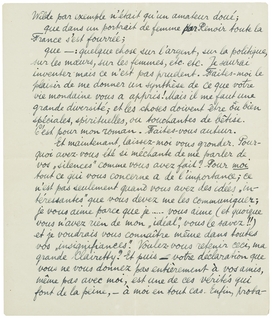 Wilde par exemple n'était qu'un amateur doué;
que dans un portrait de femme par Renoir toute la
France s'est fourrié;
que —: quelque chose sur l'argent, sur la politique,
sur les mœurs, sur les femmes, etc. etc. Je saurai
inventer mais ce n'est pas prudent. Faites-moi le
plaisir de me donner un synthèse de ce que votre
vie mondaine vous a appris. Mais il me faut une
grande diversité; et les choses doivent être ou bien
spéciales, spirituelles, ou touchantes de bêtise.
C'est pour mon roman. Faites-vous auteur.
Et maintenant, laissez-moi vous gronder. Pour-
quoi avez-vous été si méchante de me parler de
vos "silences" comme vous avez fait? Pour moi
tout ce qui vous concerne a de l'importance; ce
n'est pas seulement quand vous avez des idées "in-
téressantes" que vous devez me les communiquer;
je vous aime parce que je .... vous aime (et quoique
vous n'avez rien de mon "ideal", vous le savez!!)
et je voudrais vous connaître même dans toutes
vos "insignifiances". Voulez-vous retenir ceci, ma
grande Clairetty? Et puis — votre déclaration que
vous ne vous donnez pas entièrement à vos amis,
même pas avec moi, est une de ces vérités qui
font de la peine, — à moi en tout cas. Enfin, proba-